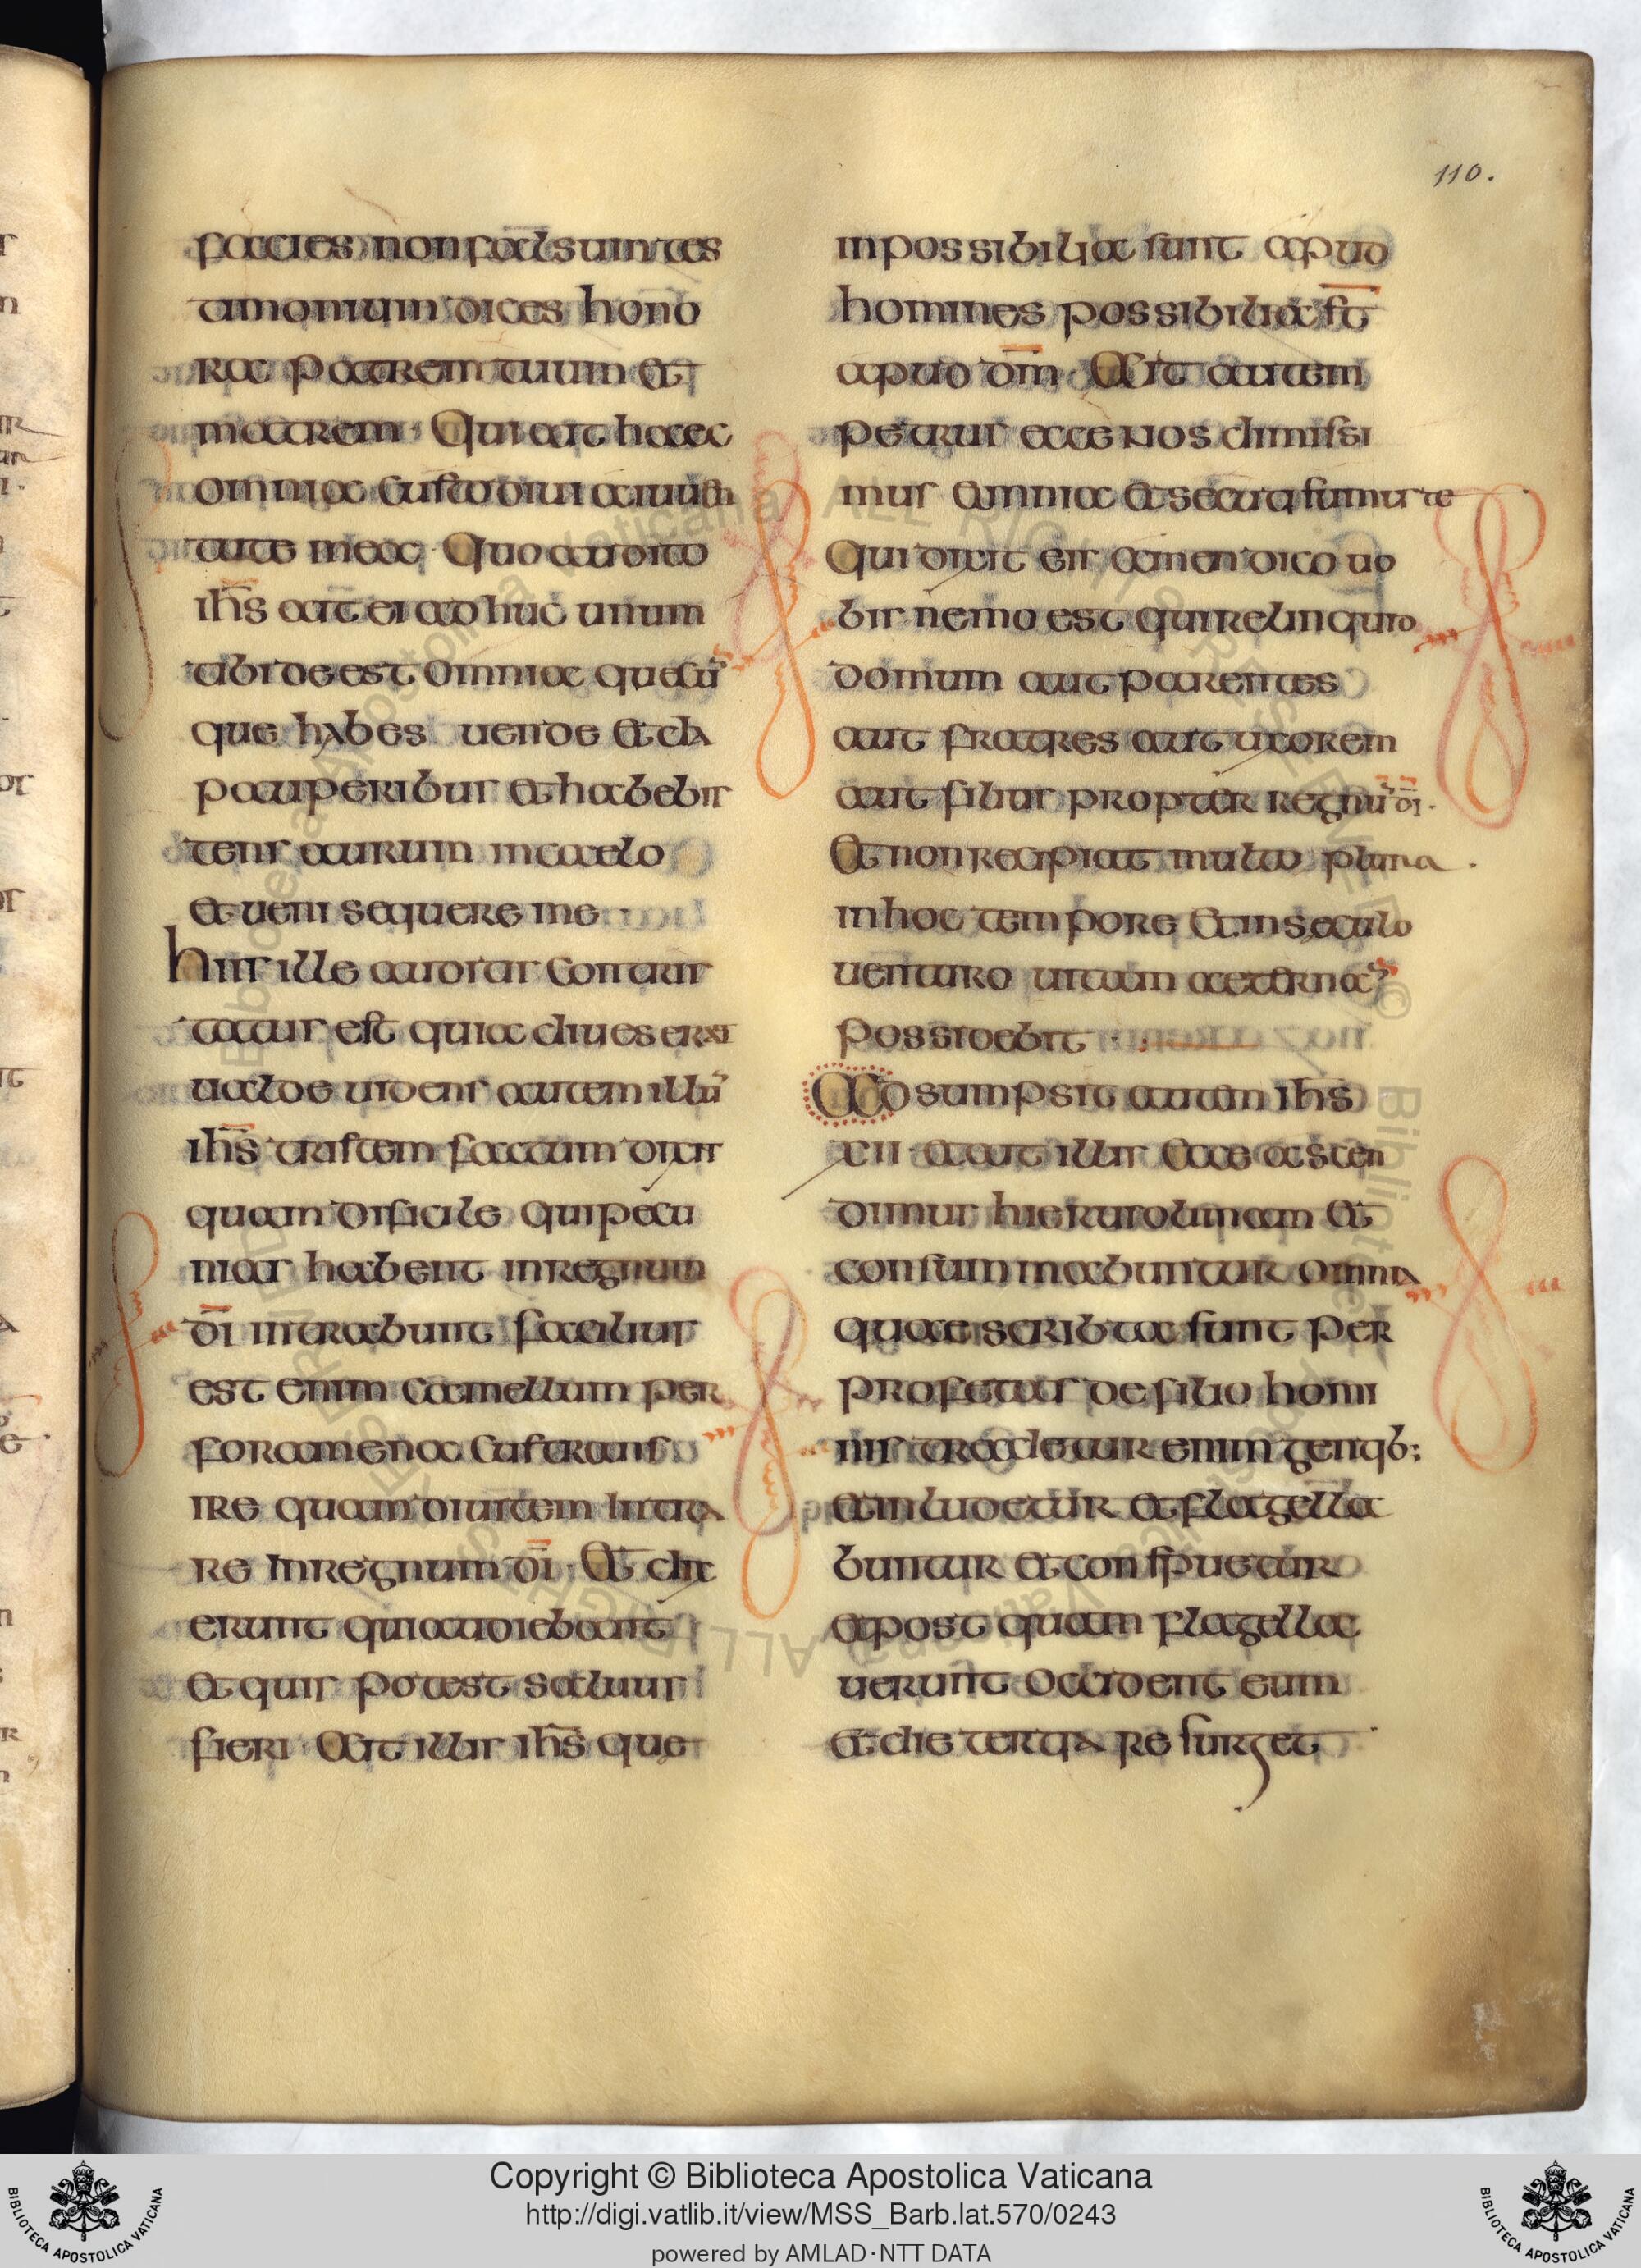 110.
facies non falsum tes
timonium dices hono
ra patrem tuum et
matrem · Qui ait haec
omnia custodiui a iuuen
tute mea · Quo audito
ih̅s ait ei adhuc unum
tibi deest omnia quecū
que habes uende et da
pauperibus et habebis
tens aurum in caelo
et ueni sequere me
his ille auditis contris
tatus est quia diues erat
ualde uidens autem illū
ih̅s tristem factum dixit
quam dificile qui pecu
nias habent in regnum
d̅i intrabunt facilius
est enim camellum per
foramen acus trans
ire quam diuitem intra
re in regnum d̅i · Et dix
erunt qui audiebant
et quis potest saluus
fieri · Ait illis ih̅s que
inpossibilia sunt apud
homines possibilia s̅t
apud d̅m · Ait autem
petrus ecce nos dimissi
mus omnia et secuti sumus te
Qui dixit eis amen dico uo
bis nemo est qui relinquid
domum aut parentes
aut fratres aut uxorem
aut filius propter regnū d̅i ·
Et non recipiat multo plura ·
in hoc tempore et in seculo
uenturo uitam aeternā
possidebit ·
Adsumpsit autem ih̅s
xii · et ait illis Ecce asten
dimus hierusolimam et
consummabuntur omnia
quae scribta sunt per
profetas de filio homi
nis tradetur enim gentib;
et inludetur et flagella
buntur et conspuetur
et post quam flagella
uerunt occident eum
et die tertia resurget
Copyright © Biblioteca Apostolica Vaticana
http://digi.vatlib.it/view/MSS_Barb.lat.570/0243
powered by AMLAD·NTT DATA
BIBLIOTECA APOSTOLICA VATICANA
BIBLIOTECA APOSTOLICA VATICANA